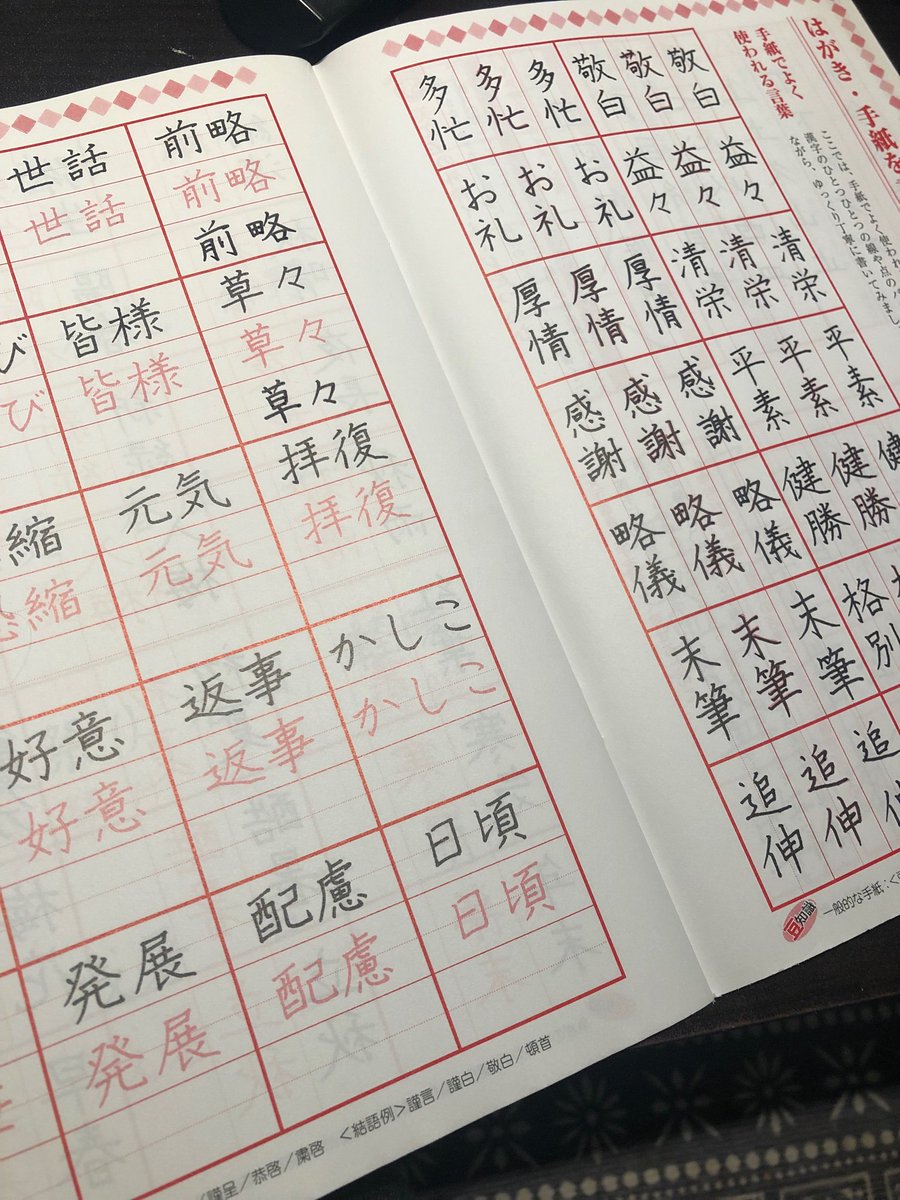 はがき・手紙を
手紙でよく
使われる言葉
ここでは、手紙でよく使われ
漢字のひとつひとつの線や点のバ
ながら、ゆっくり丁寧に書いてみまし
敬白
敬白
敬白
多忙
多忙
多忙
益々
益々
益々
お礼
お礼
お礼
清栄
清栄
清栄
厚情
厚情
厚情
平素
平素
平素
感謝
感謝
感謝
健
健勝
健勝
略儀
略儀
略儀
格別
末筆
末筆
末筆
追
追伸
追伸
豆知識
一般的な手紙:<
世話 前略
世話 前略
前略
び 皆様 草々
び 皆様 草々
草々
縮 元気 拝復
縮 元気 拝復
好意 返事 かしこ
好意 返事 かしこ
発展 配慮 日頃
発展 配慮 日頃
/謹呈/恭啓/粛啓 <結語例>謹言/謹白/敬白/頓首